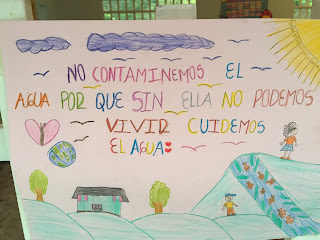 NO CONTAMINEMOS EL
AGUA POR QUE SIN ELLA NO PODEMOS
VIVIR CUIDEMOS
EL AGUA